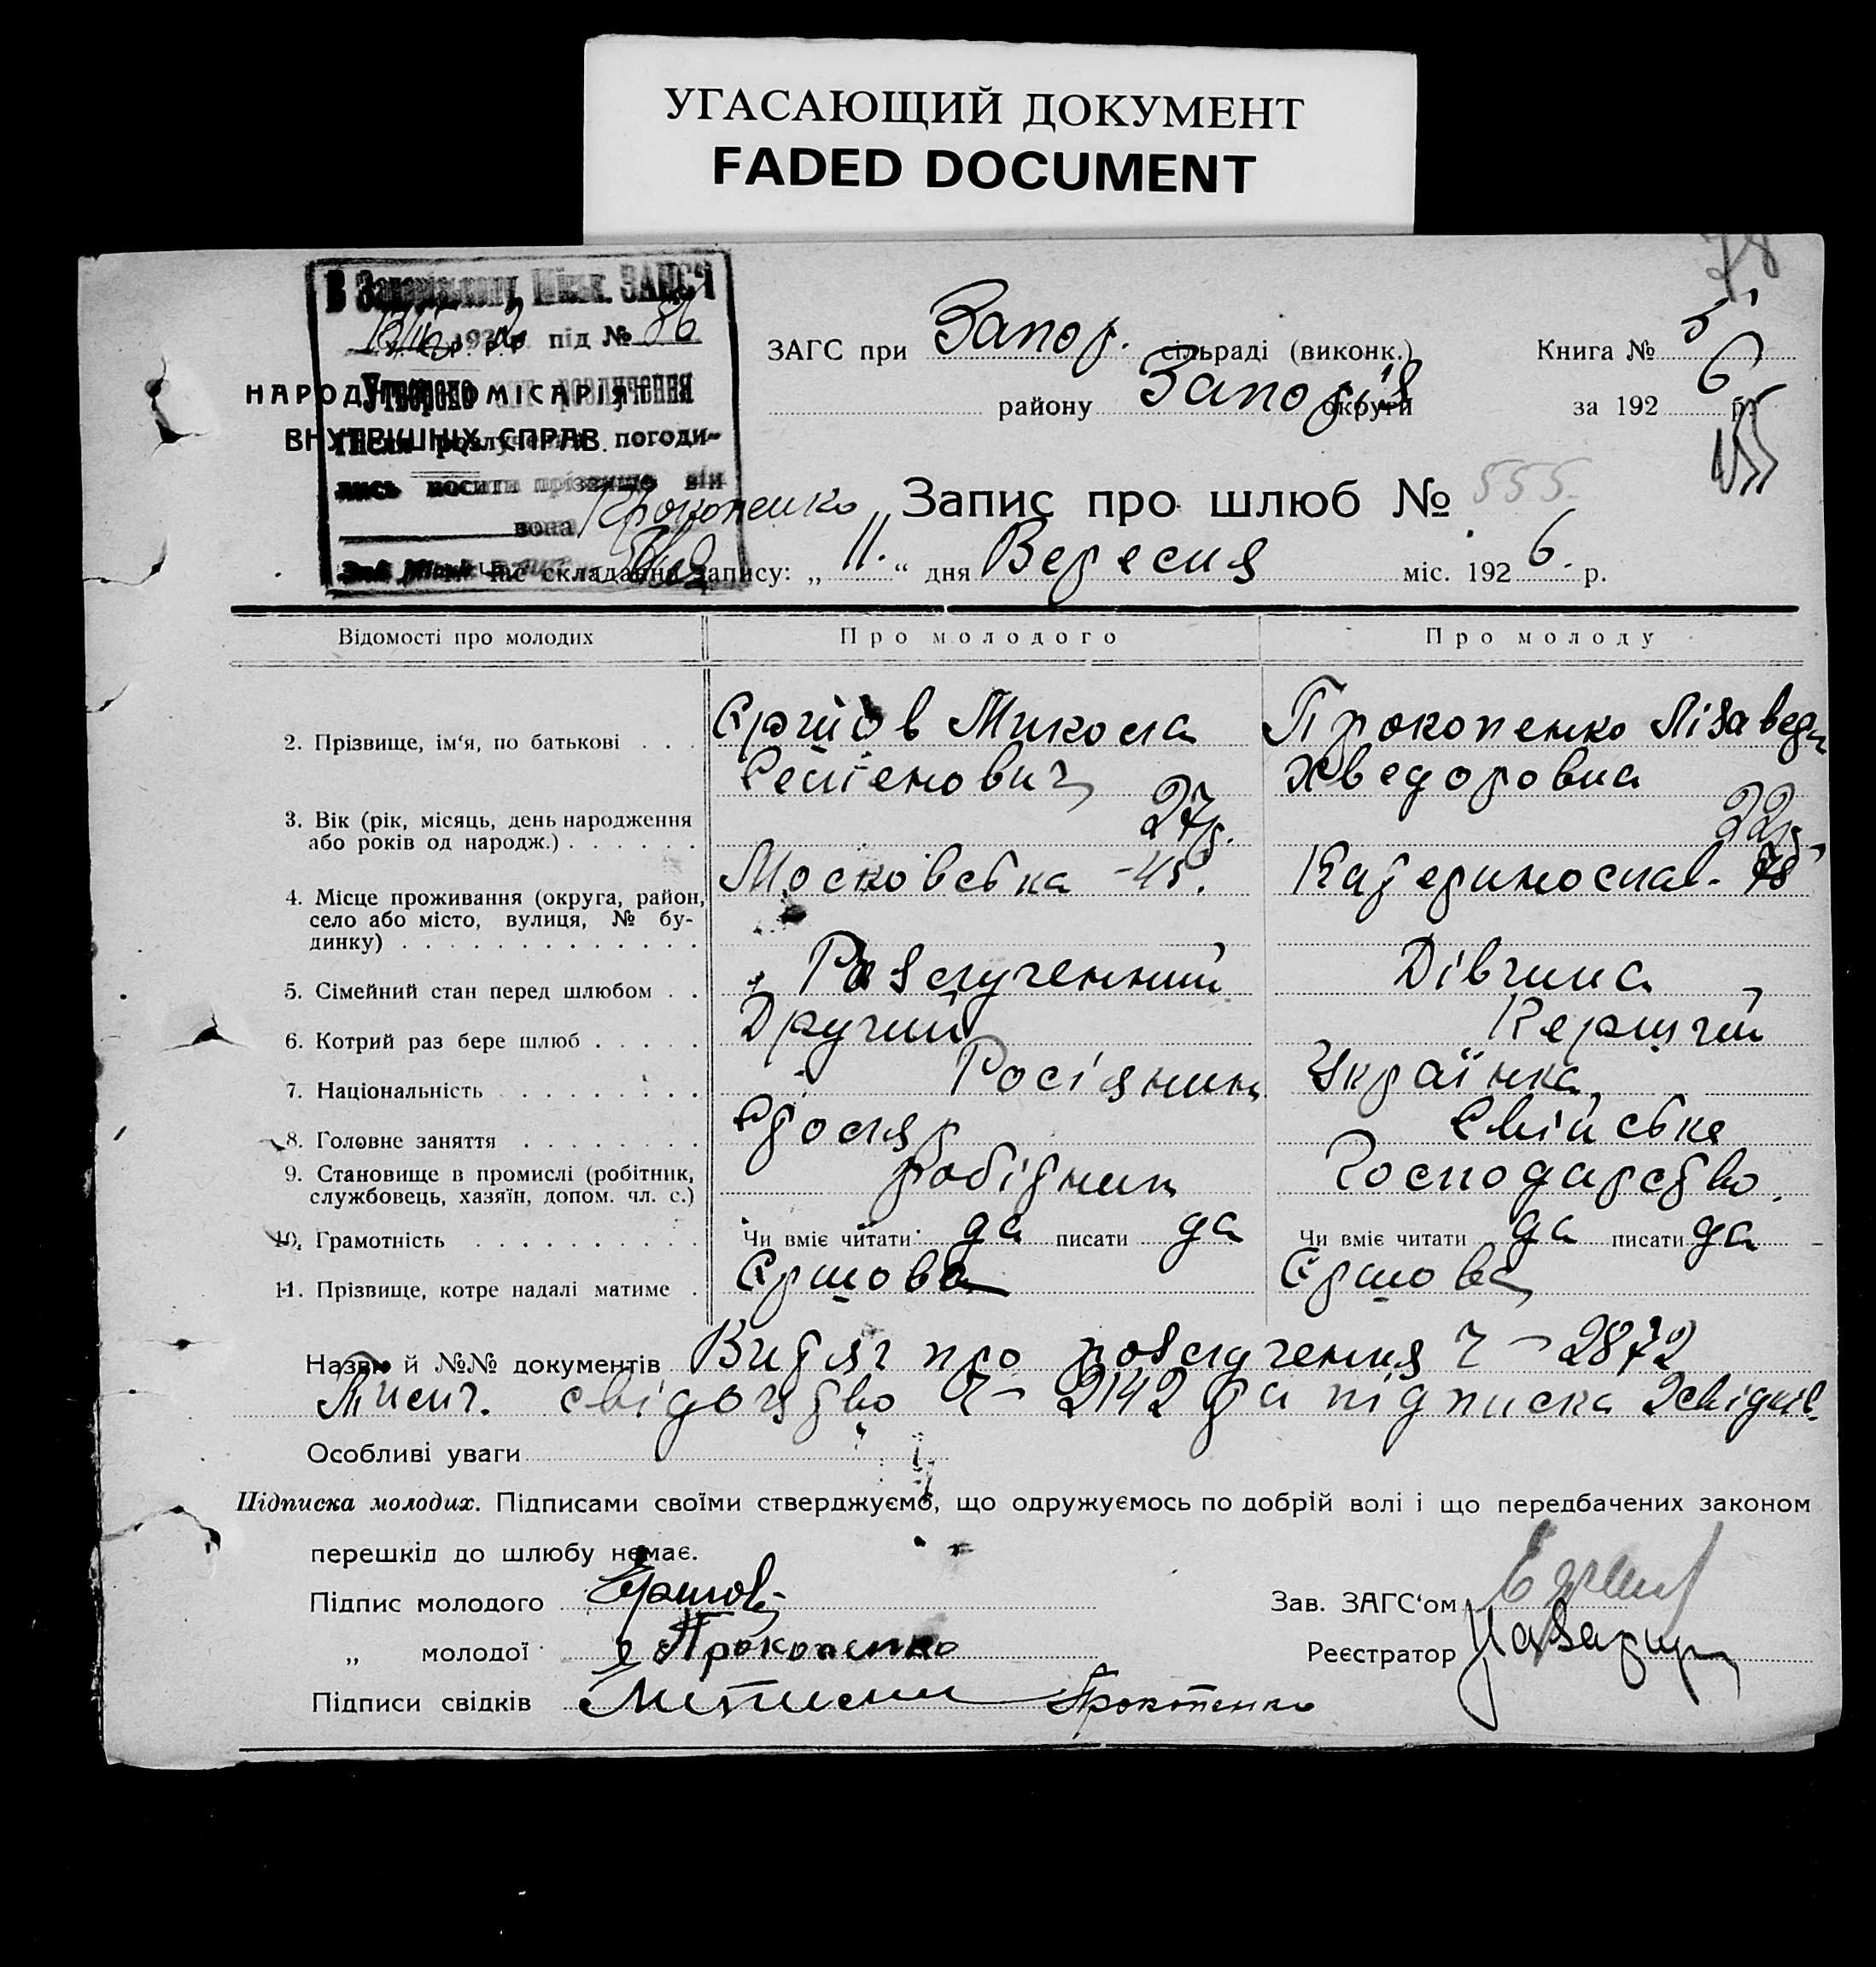 УГАСАЮЩИЙ ДОКУМЕНТ
FADED DOCUMENT
78
В Запорізькому Міськ. ЗАГС'і
193 р. під № 86
Утворено акт розлучення
Після розлучення погоди-
лись носити прізвище він
вона Прокопенко
НАРОДНІЙ КОМІСАРІЯТ
ВНУТРІШНІХ СПРАВ.
ЗАГС при Запор. сільраді (виконк.)
Книга № 5
району Запоріз округи
за 192 6 р.
155
Запис про шлюб № 555.
1. Час складання запису: „ 11. “ дня Вересня міс. 192 6. р.
Відомості про молодих
Про молодого
Про молоду
2. Прізвище, ім‘я, по батькові . . .
Єршов Микола
Семенович
Прокопенко Лізаведа
Хведоровна
3. Вік (рік, місяць, день народження
або років од народж.) . . . . . .
27р.
22р.
4. Місце проживання (округа, район,
село або місто, вулиця, № бу-
динку) . . . . . . . . . . . . .
Московська - 45.
Катеринослав. 78
5. Сімейний стан перед шлюбом . .
Розлученний
Дівчина
6. Котрий раз бере шлюб . . . . .
Другий
Перший
7. Національність . . . . . . . .
Росіянин
Українка
8. Головне заняття . . . . . . . .
Столяр
Свійське
9. Становище в промислі (робітник,
службовець, хазяїн, допом. чл. с.)
робітник
Господарство.
10. Грамотність . . . . . . . . . .
Чи вміє читати да писати да
Чи вміє читати да писати да
11. Прізвище, котре надалі матиме .
Єршова
Єршова
Назви й №№ документів Витяг про розлучення ч - 2872
Лисит. свідоцтво Ч- 2142 та підписка 2 свідків.
Особливі уваги
Підписка молодих. Підписами своїми стверджуємо, що одружуємось по добрій волі і що передбачених законом
перешкід до шлюбу немає.
Підпис молодого Ершов
Зав. ЗАГС‘ом
„ молодої Прокопенко
Реєстратор
Підписи свідків Прокопенко